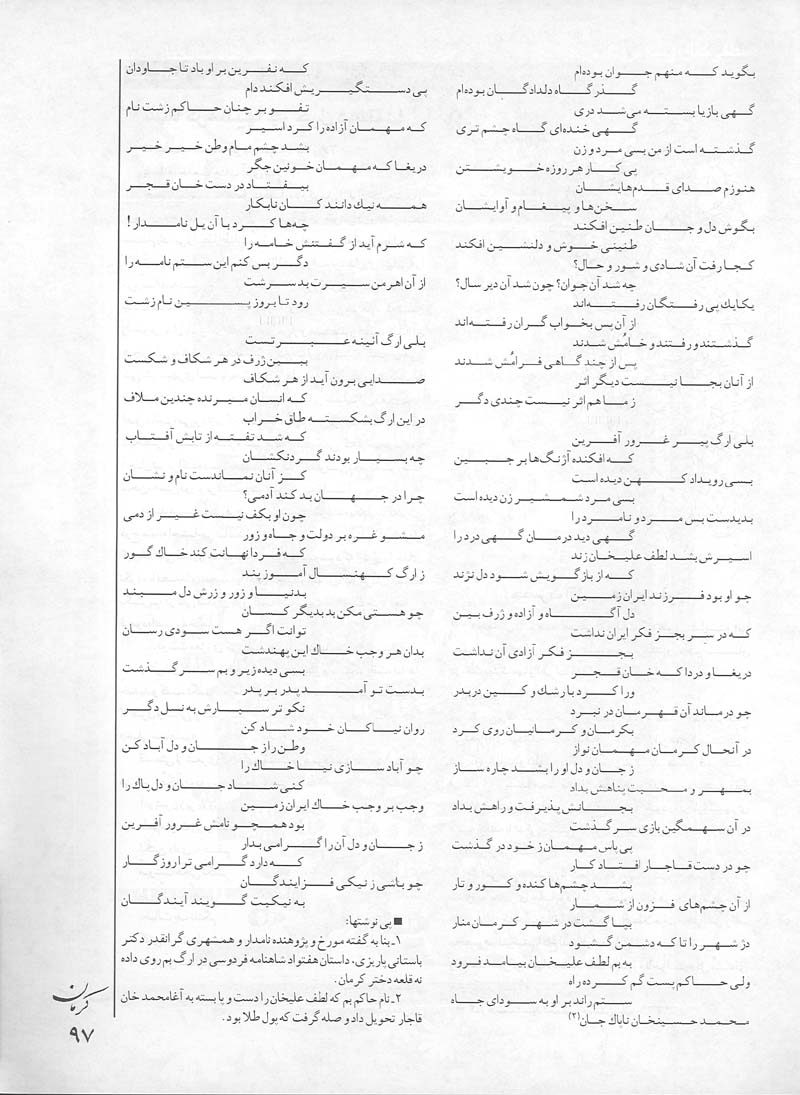 بگوید که منهم جوان بوده‌ام
گذرگاه دلدادگان بوده‌ام
گهی باز یا بسته می‌شد دری
گهی خنده‌ای گاه چشم تری
گذشته است از من بسی مرد و زن
پی کار هر روزه خویشتن
هنوزم صدای قدم‌هایشان
سخن‌ها و پیغام و آوایشان
بگوش دل و جان طنین افکند
طنینی خوش و دلنشین افکند
کجا رفت آن شادی و شور و حال؟
چه شد آن جوان؟ چون شد آن دیر سال؟
یکایک پی رفتگان رفته‌اند
از آن پس بخواب گران رفته‌اند
گذشتند و رفتند و خامُش شدند
پس از چند گاهی فرامُش شدند
از آنان بجا نیست دیگر اثر
ز ما هم اثر نیست چندی دگر
بلی ارگ پیر غرور آفرین
که افکنده آژنگ‌ها بر جبین
بسی رویداد کهن دیده است
بسی مرد شمشیر زن دیده است
بدیدست بس مرد و نامرد را
گهی دید درمان گهی درد را
اسیرش بشد لطف علیخان زند
که از بازگویش شود دل نژند
جو او بود فرزند ایران زمین
دل آگاه و آزاده و ژرف بین
که در سر بجز فکر ایران نداشت
بجز فکر آزادی آن نداشت
دریغا و دردا که خان قجر
ورا کرد با رشك و کین دربدر
جو درماند آن قهرمان در نبرد
بکرمان و کرمانیان روی کرد
در آنحال کرمان مهمان نواز
ز جان و دل او را بشد چاره ساز
بمهر و محبت پناهش بداد
بجانش پذیرفت و راهش بداد
در آن سهمگین بازی سرگذشت
پی پاس مهمان ز خود در گذشت
جو در دست قاجار افتاد کار
بشد چشم‌ها کنده و کور و تار
از آن چشم‌های فزون از شمار
بپا گشت در شهر کرمان منار
دژ شهر را تا که دشمن گشود
به بم لطف علیخان بیامد فرود
ولی حاکم پست گم کرده راه
ستم راند بر او به سودای جاه
محمد حسینخان ناپاك جان(۲)
که نفرین بر او باد تا جاودان
پی دستگیریش افکند دام
تفو بر چنان حاکم زشت نام
که مهمان آزاده را کرد اسیر
بشد چشم مام وطن خیر خیر
دریغا که مهمان خونین جگر
بیفتاد در دست خان قجر
همه نیك دانند کان نابکار
چه‌ها کرد با آن یل نامدار!
که شرم آید از گفتنش خامه را
دگر بس کنم این ستم نامه را
از آن اهرمن سیرت بد سرشت
رود تا بروز پسین نام زشت
بلی ارگ آئینه عبرتست
ببین ژرف در هر شکاف و شکست
صدایی برون آید از هر شکاف
که انسان میرنده چندین ملاف
در این ارگ بشکسته طاق خراب
که شد تفته از تابش آفتاب
چه بسیار بودند گردنکشان
کز آنان نماندست نام و نشان
چرا در جهان بد کند آدمی؟
چون او بکف نیست غیر از دمی
مشو غره بر دولت و جاه و زور
که فردا نهانت کند خاك گور
ز ارگ کهنسال آموز پند
بدنیا و زور و زرش دل مبند
جو هستی مکن بد بدیگر کسان
توانت اگر هست سودی رسان
بدان هر وجب خاك این بهندشت
بسی دیده زیر و بم سرگذشت
بدست تو آمد پدر بر پدر
نکوتر سپارش به نسل دگر
روان نیاکان خود شاد کن
وطن را ز جان و دل آباد کن
جو آباد سازی نیا خاك را
کنی شاد جان و دل پاك را
وجب بر وجب خاك ایران زمین
بود همچو نامش غرور آفرین
ز جان و دل آن را گرامی بدار
که دارد گرامی ترا روزگار
چو باشی ز نیکی فزایندگان
به نیکیت گویند آیندگان
■ پی نوشتها:
۱ـ بنا به گفته مورخ و پژوهنده نامدار و همشهری گرانقدر دکتر
باستانی پاریزی، داستان هفتواد شاهنامه فردوسی در ارگ بم روی داده
نه قلعه دختر کرمان.
۲ـ نام حاکم بم که لطف علیخان را دست و پا بسته به آغامحمد خان
قاجار تحویل داد و صله گرفت که پول طلا بود.
کرمان
۹۷